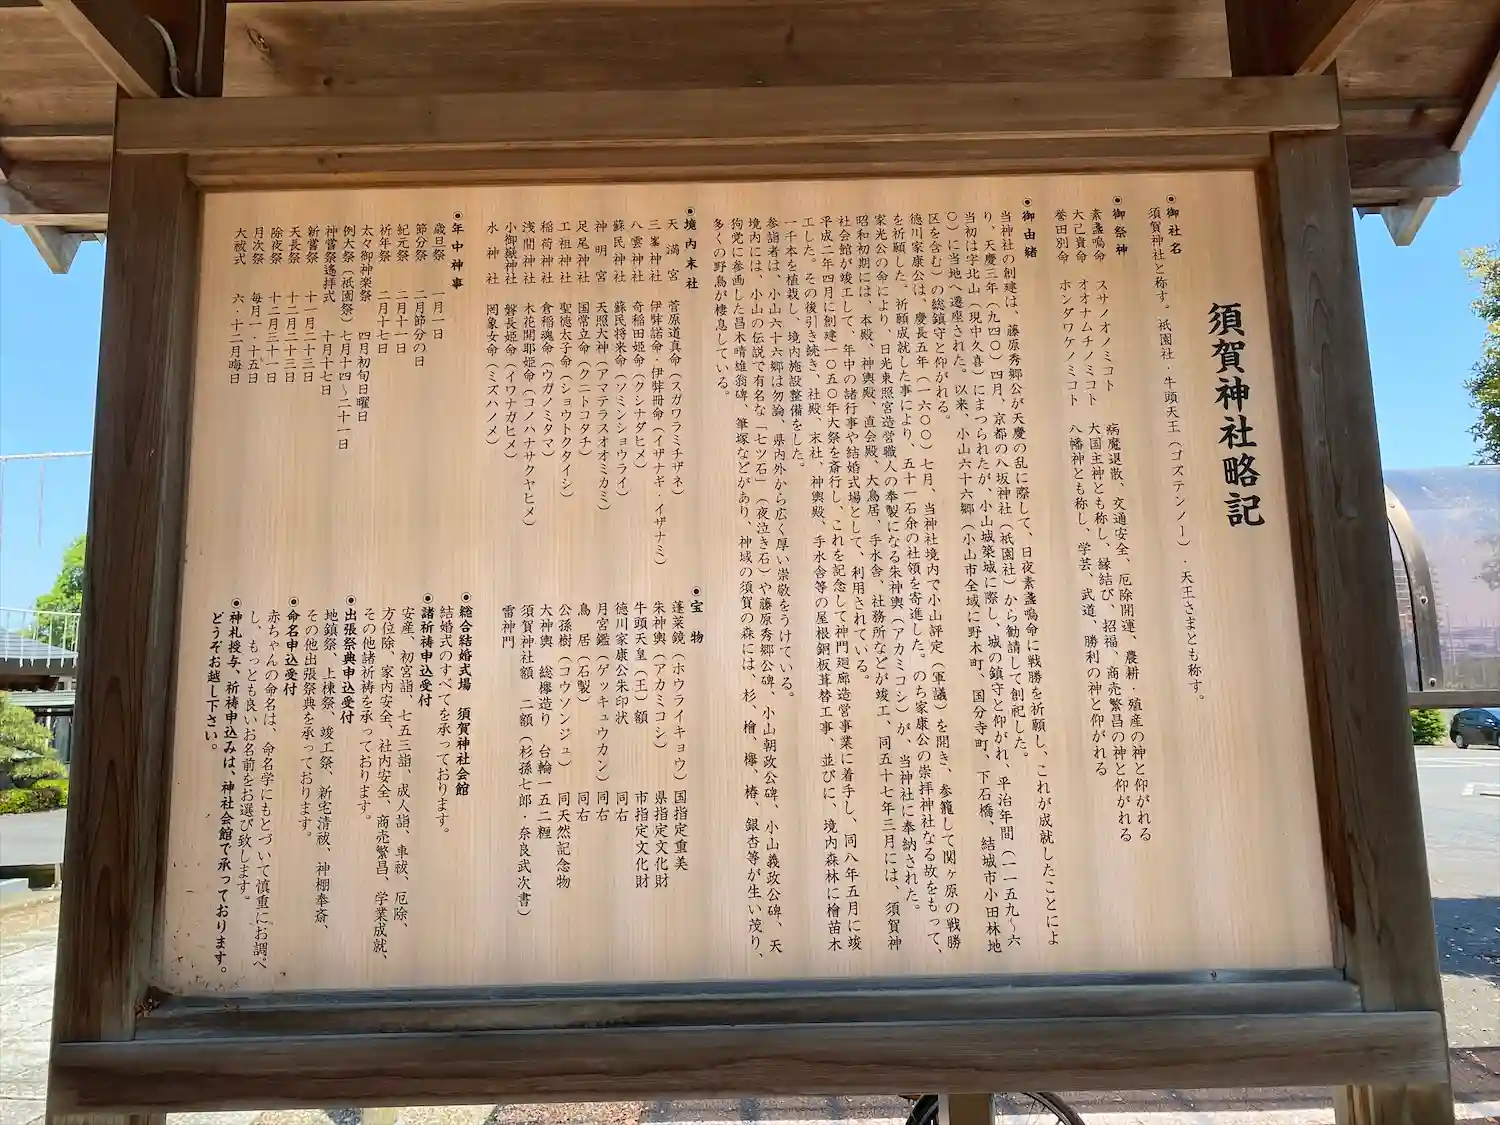 須賀神社略記
◉御社名
須賀神社と称す。祇園社・牛頭天王（ゴズテンノー）・天王さまとも称す。
◉御祭神
素盞嗚命　スサノオノミコト　病魔退散、交通安全、厄除開運、農耕・殖産の神と仰がれる
大己貴命　オオナムチノミコト　大国主神とも称し、縁結び、招福、商売繁昌の神と仰がれる
誉田別命　ホンダワケノミコト　八幡神とも称し、学芸、武道、勝利の神と仰がれる
◉御由緒
当神社の創建は、藤原秀郷公が天慶の乱に際して、日夜素盞嗚命に戦勝を祈願し、これが成就したことによ
り、天慶三年（九四〇）四月、京都の八坂神社（祇園社）から勧請して創祀した。
当初は字北山（現中久喜）にまつられたが、小山城築城に際し、城の鎮守と仰がれ、平治年間（一一五九〜六
〇）に当地へ遷座された。以来、小山六十六郷（小山市全域に野木町、国分寺町、下石橋、結城市小田林地
区を含む）の総鎮守と仰がれる。
徳川家康公は、慶長五年（一六〇〇）七月、当神社境内で小山評定（軍議）を開き、参籠して関ヶ原の戦勝
を祈願した。祈願成就した事により、五十一石余の社領を寄進した。のち家康公の崇拝神社なる故をもって、
家光公の命により、日光東照宮造営職人の奉製になる朱神輿（アカミコシ）が、当神社に奉納された。
昭和初期には、本殿、神輿殿、直会殿、大鳥居、手水舎、社務所などが竣工、同五十七年三月には、須賀神
社会館が竣工して、年中の諸行事や結婚式場として、利用されている。
平成二年四月に創建一〇五〇年大祭を斎行し、これを記念して神門廻廊造営事業に着手し、同八年五月に竣
工した。その後引き続き、社殿、末社、神輿殿、手水舎等の屋根銅板葺替工事、並びに、境内森林に檜苗木
一千本を植栽し、境内施設整備をした。
参詣者は、小山六十六郷は勿論、県内外から広く厚い崇敬をうけている。
境内には、小山の伝説で有名な「七ツ石」（夜泣き石）や藤原秀郷公碑、小山朝政公碑、小山義政公碑、天
狗党に参画した昌木晴雄翁碑、筆塚などがあり、神域の須賀の森には、杉、檜、欅、椿、銀杏等が生い茂り、
多くの野鳥が棲息している。
◉境内末社
天満宮　菅原道真命（スガワラミチザネ）
三峯神社　伊弉諾命・伊弉冊命（イザナギ・イザナミ）
八雲神社　奇稲田姫命（クシナダヒメ）
蘇民神社　蘇民将来命（ソミンショウライ）
神明宮　天照大神（アマテラスオオミカミ）
足尾神社　国常立命（クニトコタチ）
工祖神社　聖徳太子命（ショウトクタイシ）
稲荷神社　倉稲魂命（ウガノミタマ）
浅間神社　木花開耶姫命（コノハナサクヤヒメ）
小御嶽神社　磐長姫命（イワナガヒメ）
水神社　罔象女命（ミズハノメ）
◉年中神事
歳旦祭　一月一日
節分祭　二月節分の日
紀元祭　二月十一日
祈年祭　二月十七日
太々御神楽祭　四月初旬日曜日
例大祭（祇園祭）七月十四〜二十一日
神嘗祭遙拝式　十月十七日
新嘗祭　十一月二十三日
天長祭　十二月二十三日
除夜祭　十二月三十一日
月次祭　毎月一・十五日
大祓式　六・十二月晦日
◉宝物
蓬莱鏡（ホウライキョウ）国指定重美
朱神輿（アカミコシ）　県指定文化財
牛頭天皇（王）額　市指定文化財
徳川家康公朱印状　同右
月宮鑑（ゲッキュウカン）　同右
鳥居（石製）　同右
公孫樹（コウソンジュ）　同天然記念物
大神輿　総欅造り　台輪一五二糎
須賀神社額　二額（杉孫七郎・奈良武次書）
雷神門
◉総合結婚式場　須賀神社会館
結婚式のすべてを承っております。
◉諸祈祷申込受付
安産、初宮詣、七五三詣、成人詣、車祓、厄除、
方位除、家内安全、社内安全、商売繁昌、学業成就、
その他諸祈祷を承っております。
◉出張祭典申込受付
地鎮祭、上棟祭、竣工祭、新宅清祓、神棚奉斎、
その他出張祭典を承っております。
◉命名申込受付
赤ちゃんの命名は、命名学にもとづいて慎重にお調べ
し、もっとも良いお名前をお選び致します。
◉神札授与・祈祷申込みは、神社会館で承っております。
どうぞお越し下さい。